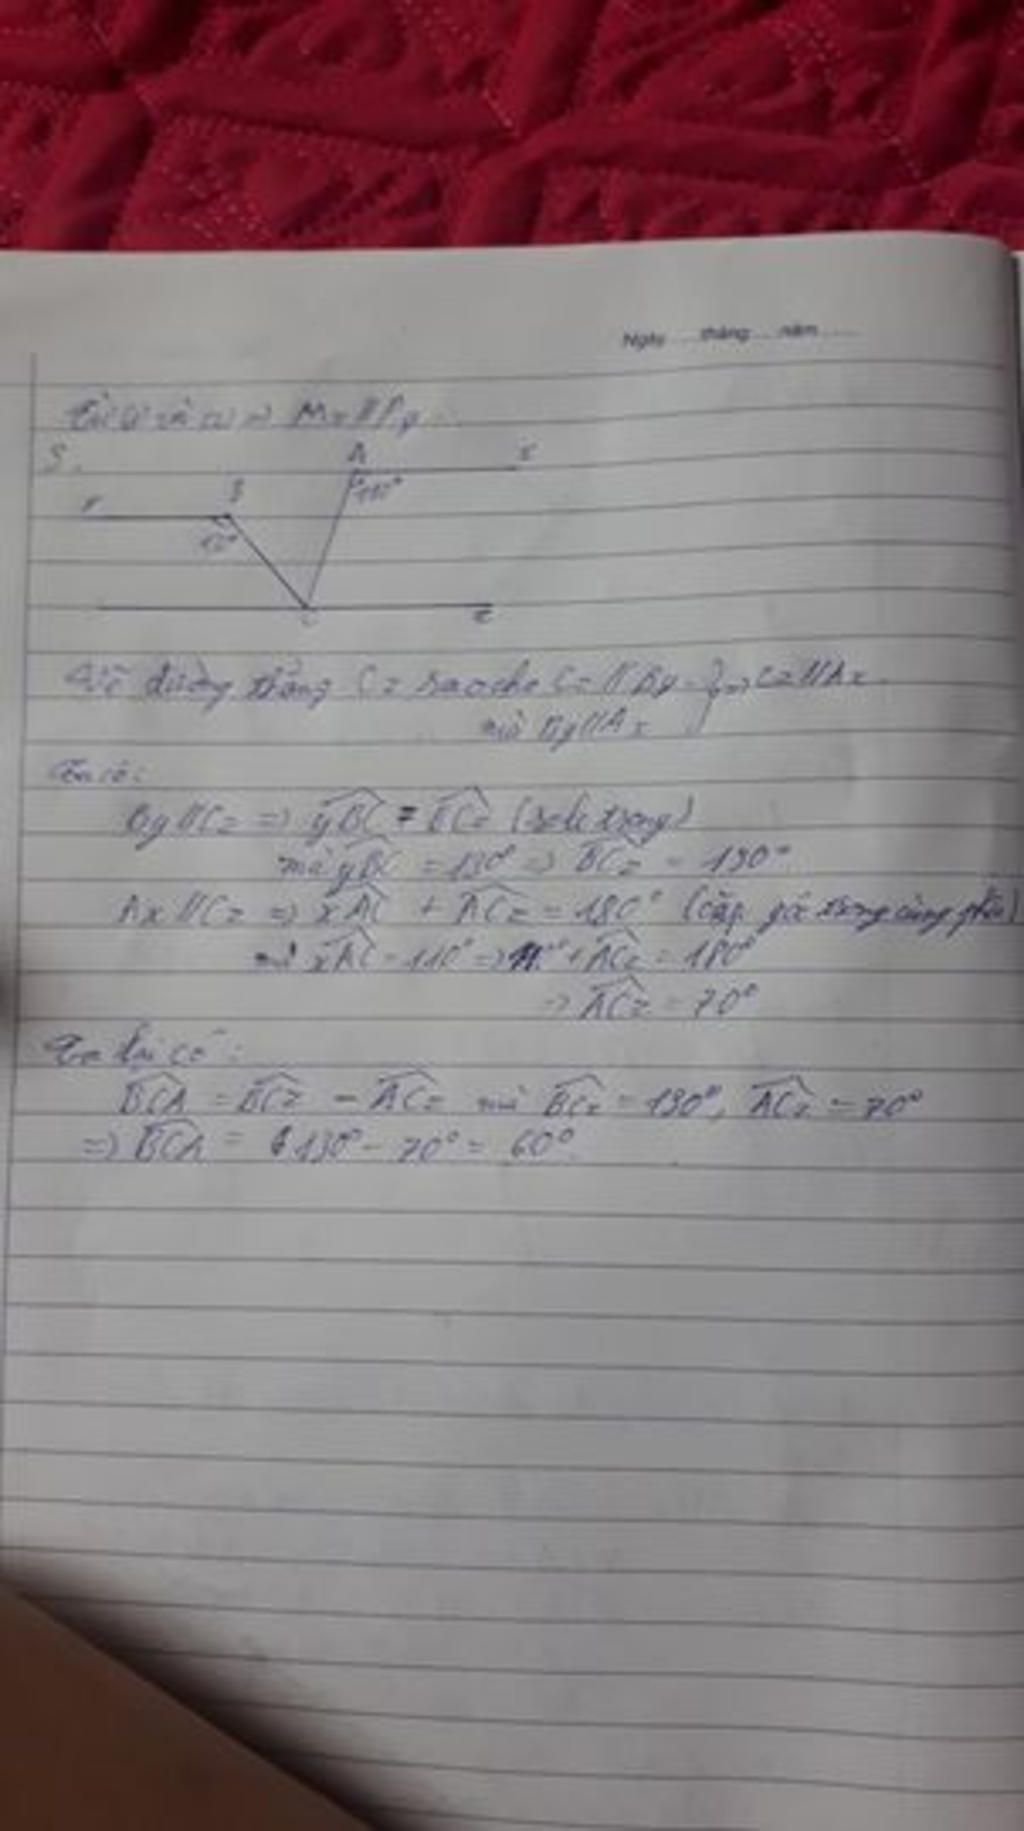 Ngày ..... tháng ..... năm ........
Từ (1) và (2) => Mx // Py
5.
A x
y B 110°
130°
C z
Vẽ đường thẳng Cz sao cho Cz // By } => Cz // Ax
mà By // Ax
Ta có:
By // Cz => yBC = BCz (so le trong)
mà yBC = 130° => BCz = 130°
Ax // Cz => xAC + ACz = 180° (cặp góc trong cùng phía)
mà xAC = 110° => 110° + ACz = 180°
=> ACz = 70°
Ta lại có:
BCA = BCz - ACz mà BCz = 130°, ACz = 70°
=> BCA = 130° - 70° = 60°